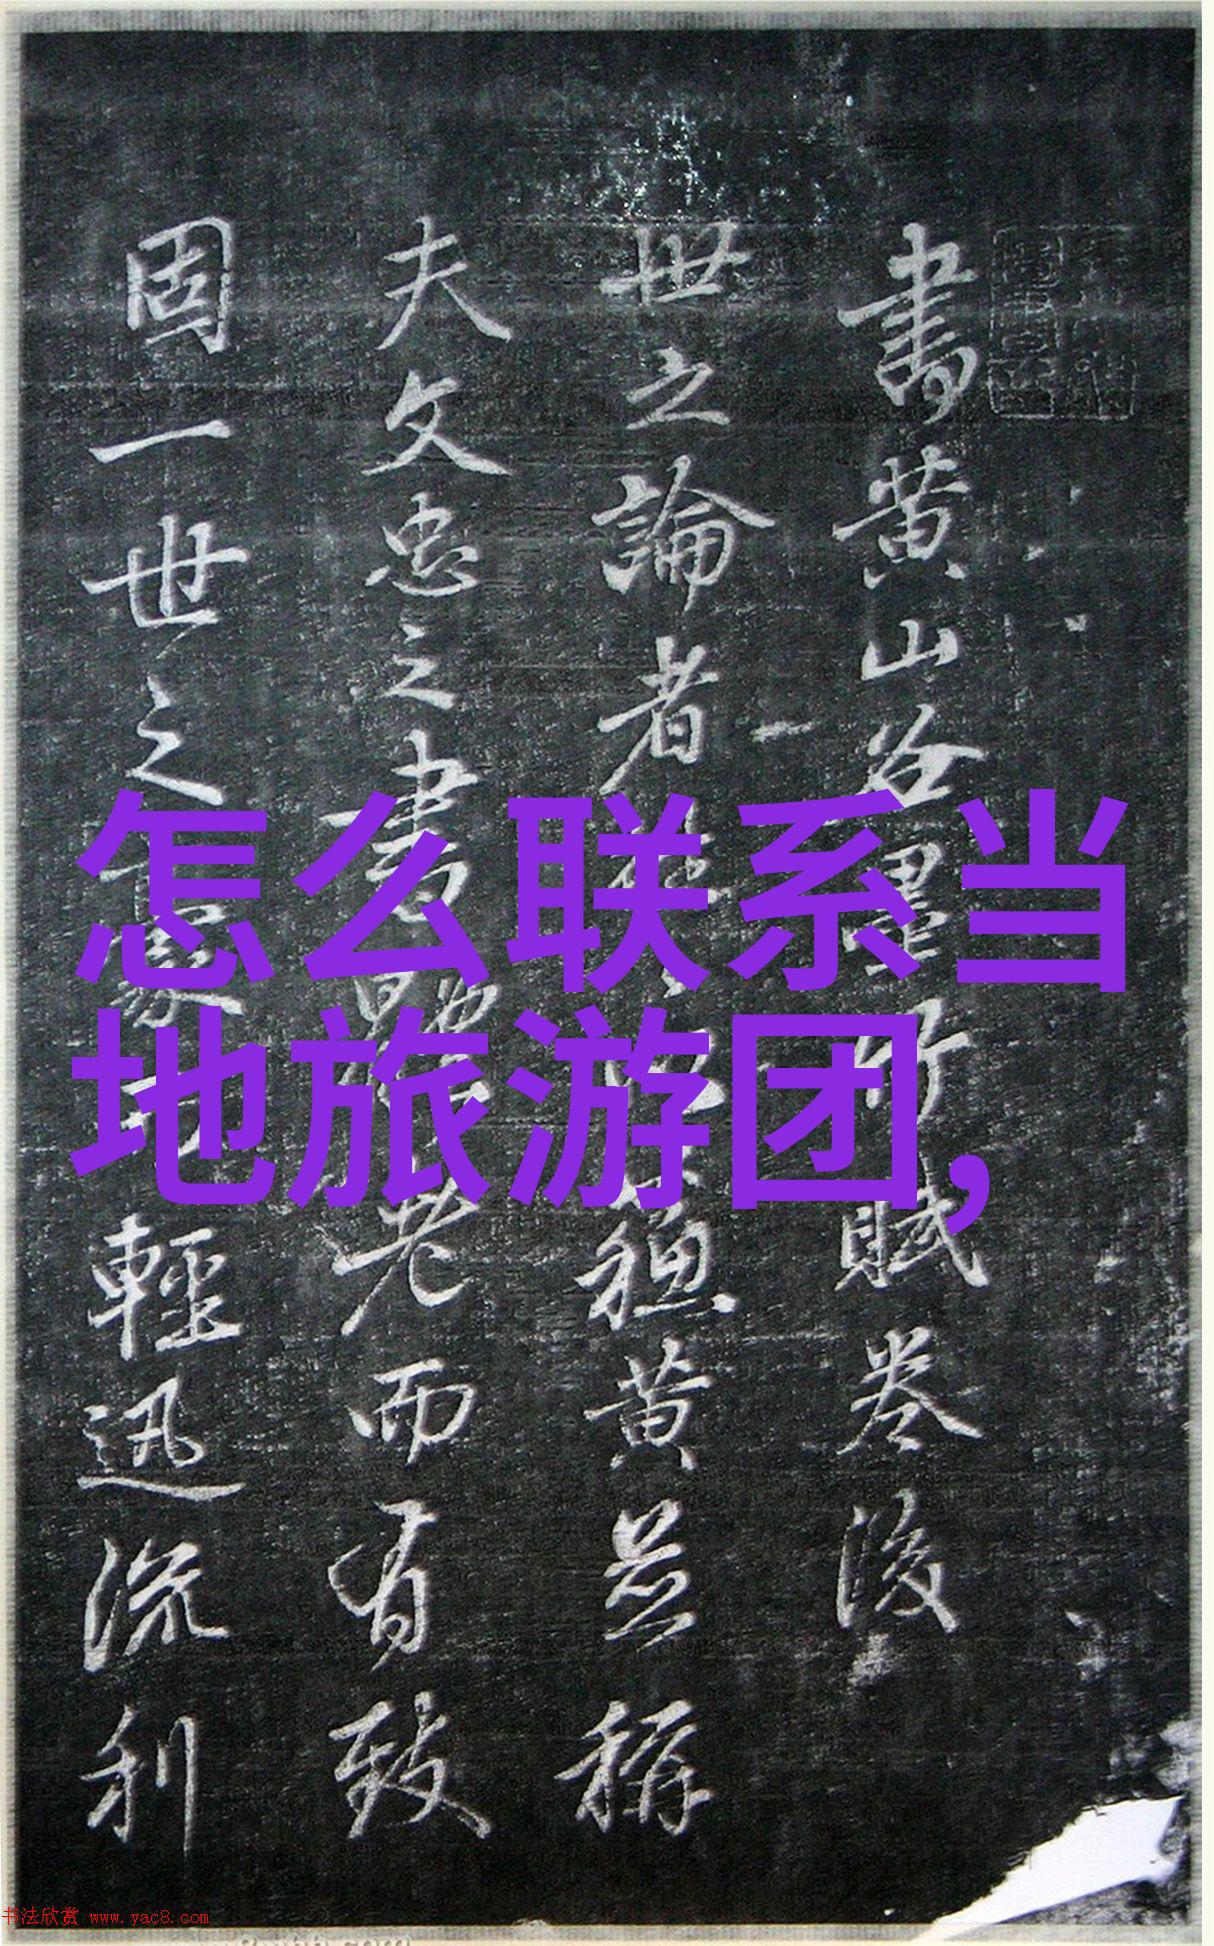 書黄山谷墨竹賦卷後
世之論者
穏黄並稱
夫文忠之書
老而有致
固一世之
輕迅流利
怎么联系当
地旅游团,
书法欣赏 www.yac8.com